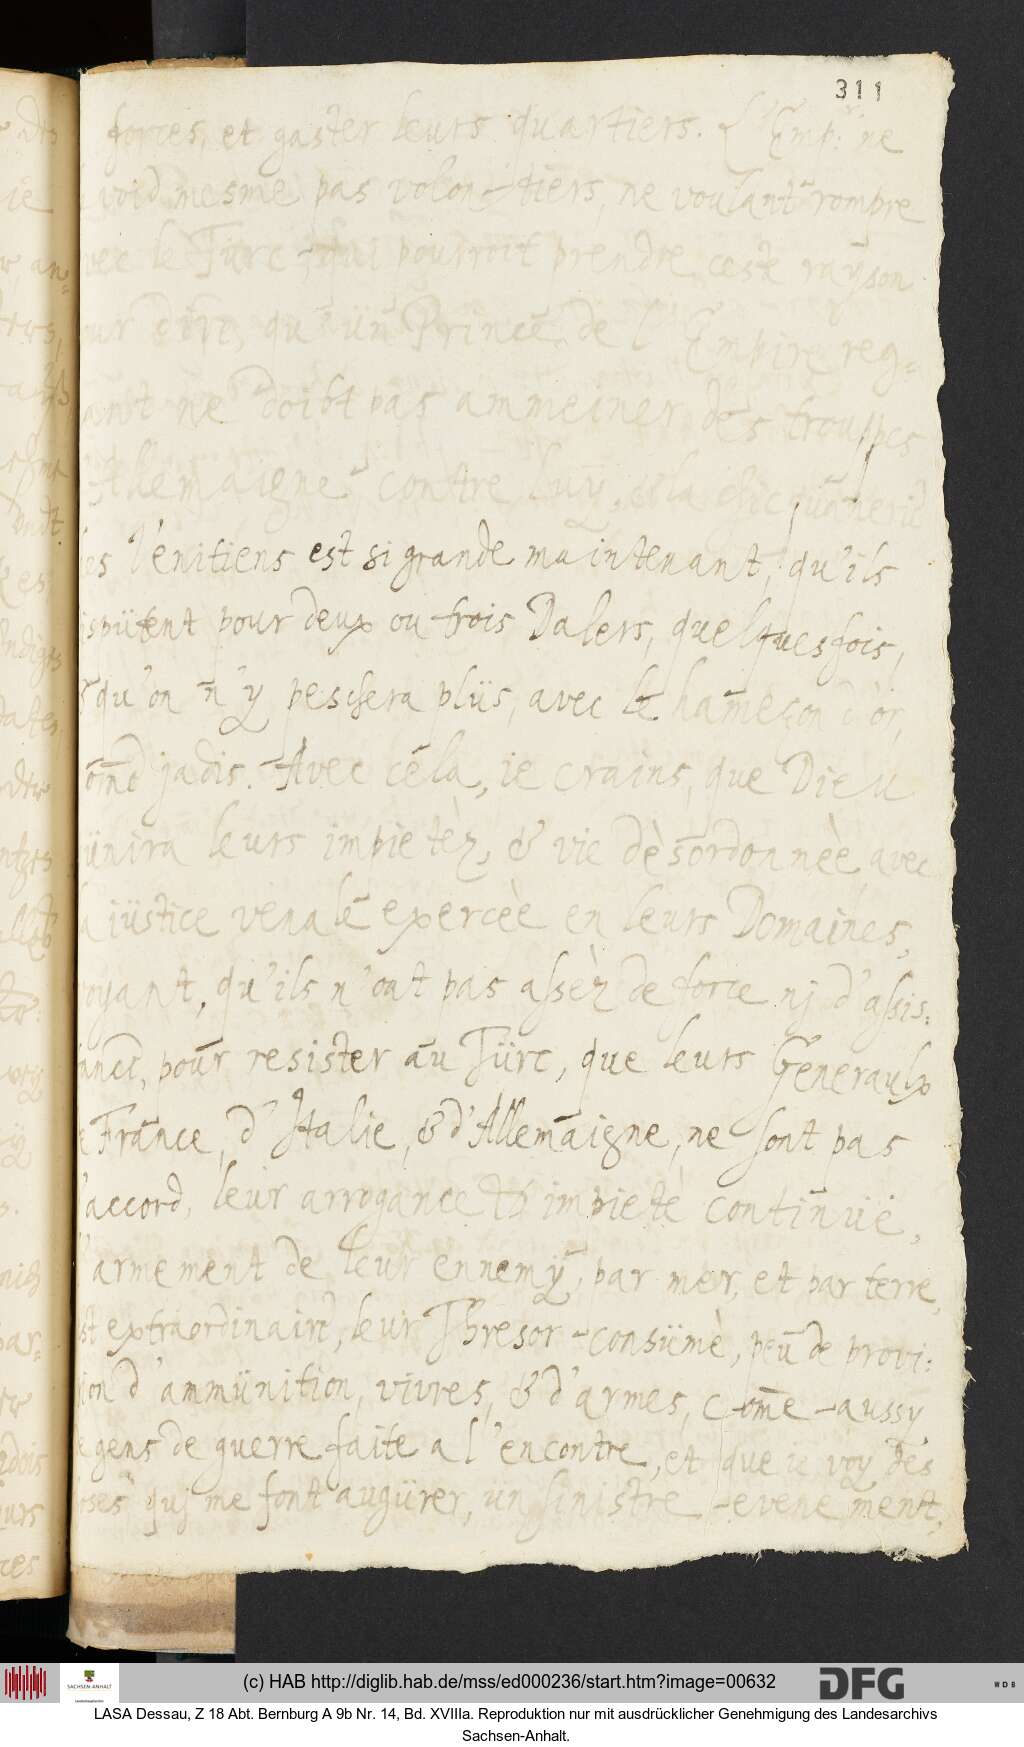 311
forces, et gaster leurs quartiers. L'Emp.r ne
void mesme pas volontiers, ne voulant rompre
vec le Turc, qui pourroit prendre ceste rayson
ur dire, qu'ün Prince de l'Empire reg=
ant ne doibt pas ammeiner des trouppes
Allemaigne contre luy, et la chicquanerie
es Venitiens est si grande maintenant, qu'ils
ispütent pour deux ou trois Dalers, quelquesfois,
qu'on n'y peschera plüs, avec le hameçon d'or,
omme jadis. Avec cela, ie crains, que Dieu
ünira leurs impietèz, & vie dèsordonnèe avec
a iüstice venale exercèe en leurs Domaines,
oyant, qu'ils n'ont pas assèz de force nj d'assis=
ance, pour resister au Türc, que leurs Generaulx
e France, d'Italie, & d'Allemaigne, ne sont pas
'accord, leur arrogance et impietè continuë,
l'armement de leur ennemy, par mer, et par terre,
st extraordinaire, leur Thresor consümè, peu de provi=
ion d'ammünition, vivres, & d'armes, come aussy
e gens de guerre faite a l'encontre, et que ie voy des
oses quj me font augürer, ün sinistre evenement,
(c) HAB http://diglib.hab.de/mss/ed000236/start.htm?image=00632
SACHSEN-ANHALT
DFG
WDB
LASA Dessau, Z 18 Abt. Bernburg A 9b Nr. 14, Bd. XVIIIa. Reproduktion nur mit ausdrücklicher Genehmigung des Landesarchivs
Sachsen-Anhalt.